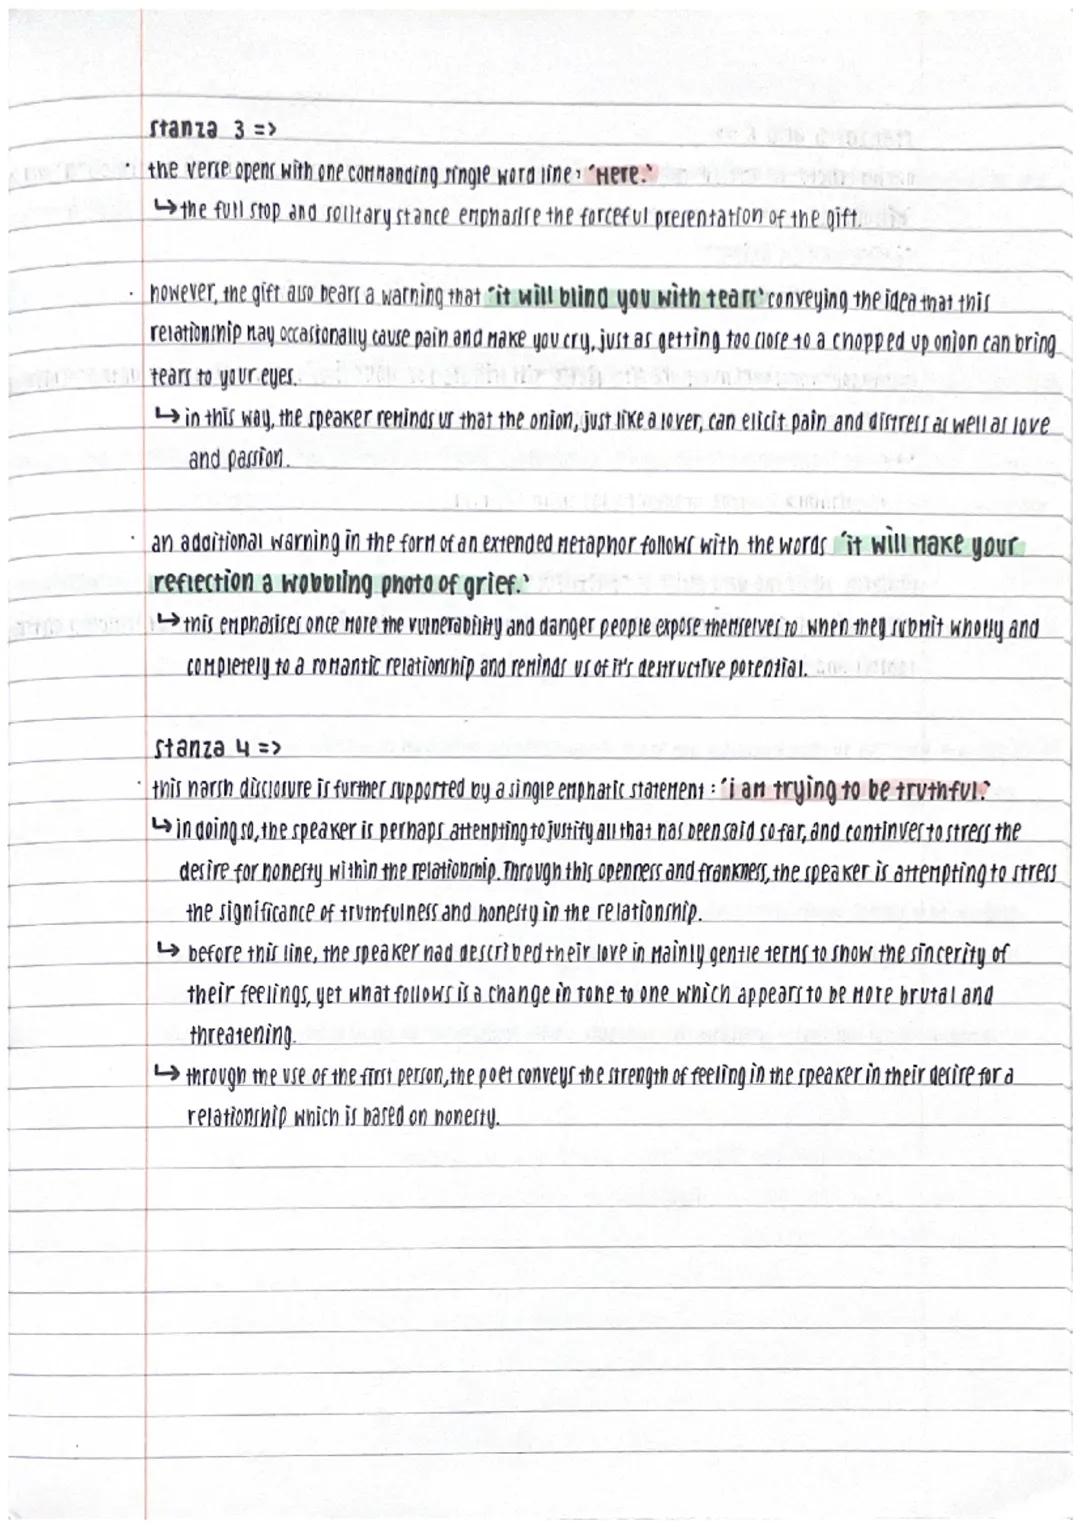 stanza 3 =>
· the verse opens with one commanding single word line: 'Here.'
↳ the full stop and solitary stance emphasise the forceful presentation of the gift.
· however, the gift also bears a warning that 'it will blind you with tears' conveying the idea that this
relationship may occasionally cause pain and make you cry, just as getting too close to a chopped up onion can bring
tears to your eyes.
↳ in this way, the speaker reminds us that the onion, just like a lover, can elicit pain and distress as well as love
and passion.
· an additional warning in the form of an extended metaphor follows with the words 'it will make your
reflection a wobbling photo of grief.'
↳ this emphasises once more the vulnerability and danger people expose themselves to when they submit wholly and
completely to a romantic relationship and reminds us of it's destructive potential.
stanza 4 =>
· this harsh disclosure is further supported by a single emphatic statement: 'i am trying to be truthful.'
↳ in doing so, the speaker is perhaps attempting to justify all that has been said so far, and continues to stress the
desire for honesty within the relationship. Through this openness and frankness, the speaker is attempting to stress
the significance of truthfulness and honesty in the relationship.
↳ before this line, the speaker had described their love in mainly gentle terms to show the sincerity of
their feelings, yet what follows is a change in tone to one which appears to be more brutal and
threatening.
↳ through the use of the first person, the poet conveys the strength of feeling in the speaker in their desire for a
relationship which is based on honesty.